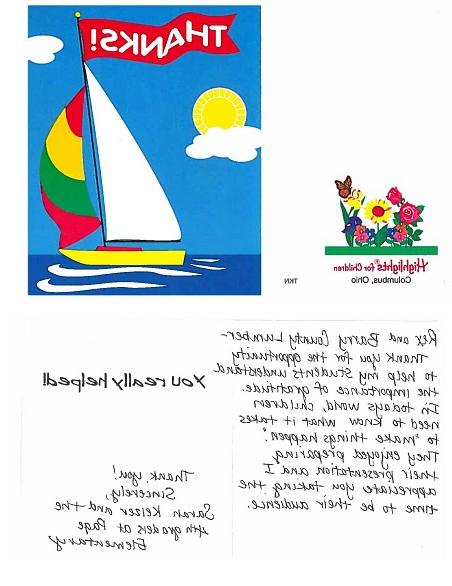 THANKS!
Highlights for Children
Columbus, Ohio
TKN
Rex and Barry County Lumber-
Thank you for the opportunity
to help my students understand
the importance of gratitude.
In todays world, children
need to know what it takes
to "make" things happen!
They enjoyed preparing
their presentation and I
appreciate you taking the
time to be their audience.
You really helped!
Thank you!
Sincerely,
Sarah Keizer and the
4th graders at Page
Elementary